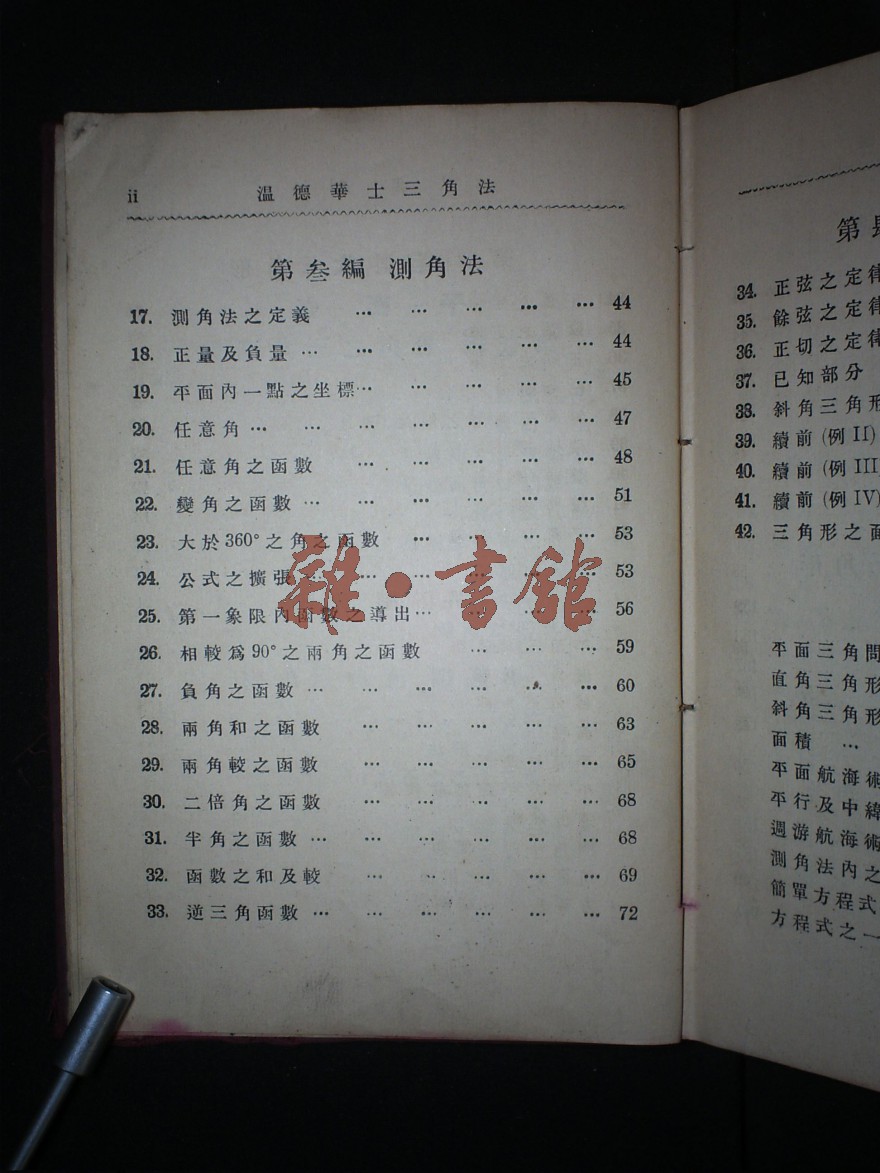 ii 温德華士三角法
第叁編 測角法
17. 測角法之定義 … … … … … 44
18. 正量及負量 … … … … … … 44
19. 平面內一點之坐標 … … … … … 45
20. 任意角 … … … … … … … 47
21. 任意角之函數 … … … … … 48
22. 變角之函數 … … … … … … 51
23. 大於360°之角之函數 … … … … 53
24. 公式之擴張 … … … … … … 53
25. 第一象限內函數之導出 … … … … 56
26. 相較爲90°之兩角之函數 … … … 59
27. 負角之函數 … … … … … … 60
28. 兩角和之函數 … … … … … 63
29. 兩角較之函數 … … … … … 65
30. 二倍角之函數 … … … … … 68
31. 半角之函數 … … … … … … 68
32. 函數之和及較 … … … … … 69
33. 逆三角函數 … … … … … … 72
雜·書館
第
34. 正弦之定律
35. 餘弦之定律
36. 正切之定律
37. 已知部分
38. 斜角三角形
39. 續前 (例 II)
40. 續前 (例 III
41. 續前 (例 IV)
42. 三角形之面
平面三角問
直角三角形
斜角三角形
面積 …
平面航海術
平行及中緯
週游航海術
測角法內之
簡單方程式
方程式之一